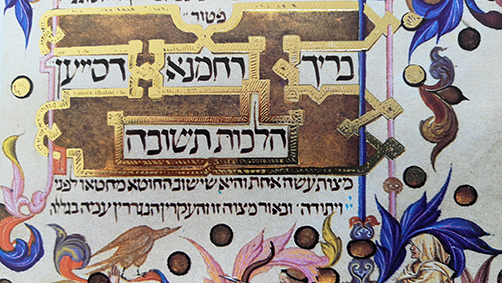 פטור
בריך רחמנא דסייען
הלכות תשובה
מצות עשה אחת והיא שישוב החוטא מחטאו לפני
יי ויתודה · ובאור מצוה זו והעקרין הנגררין עמה בגללה